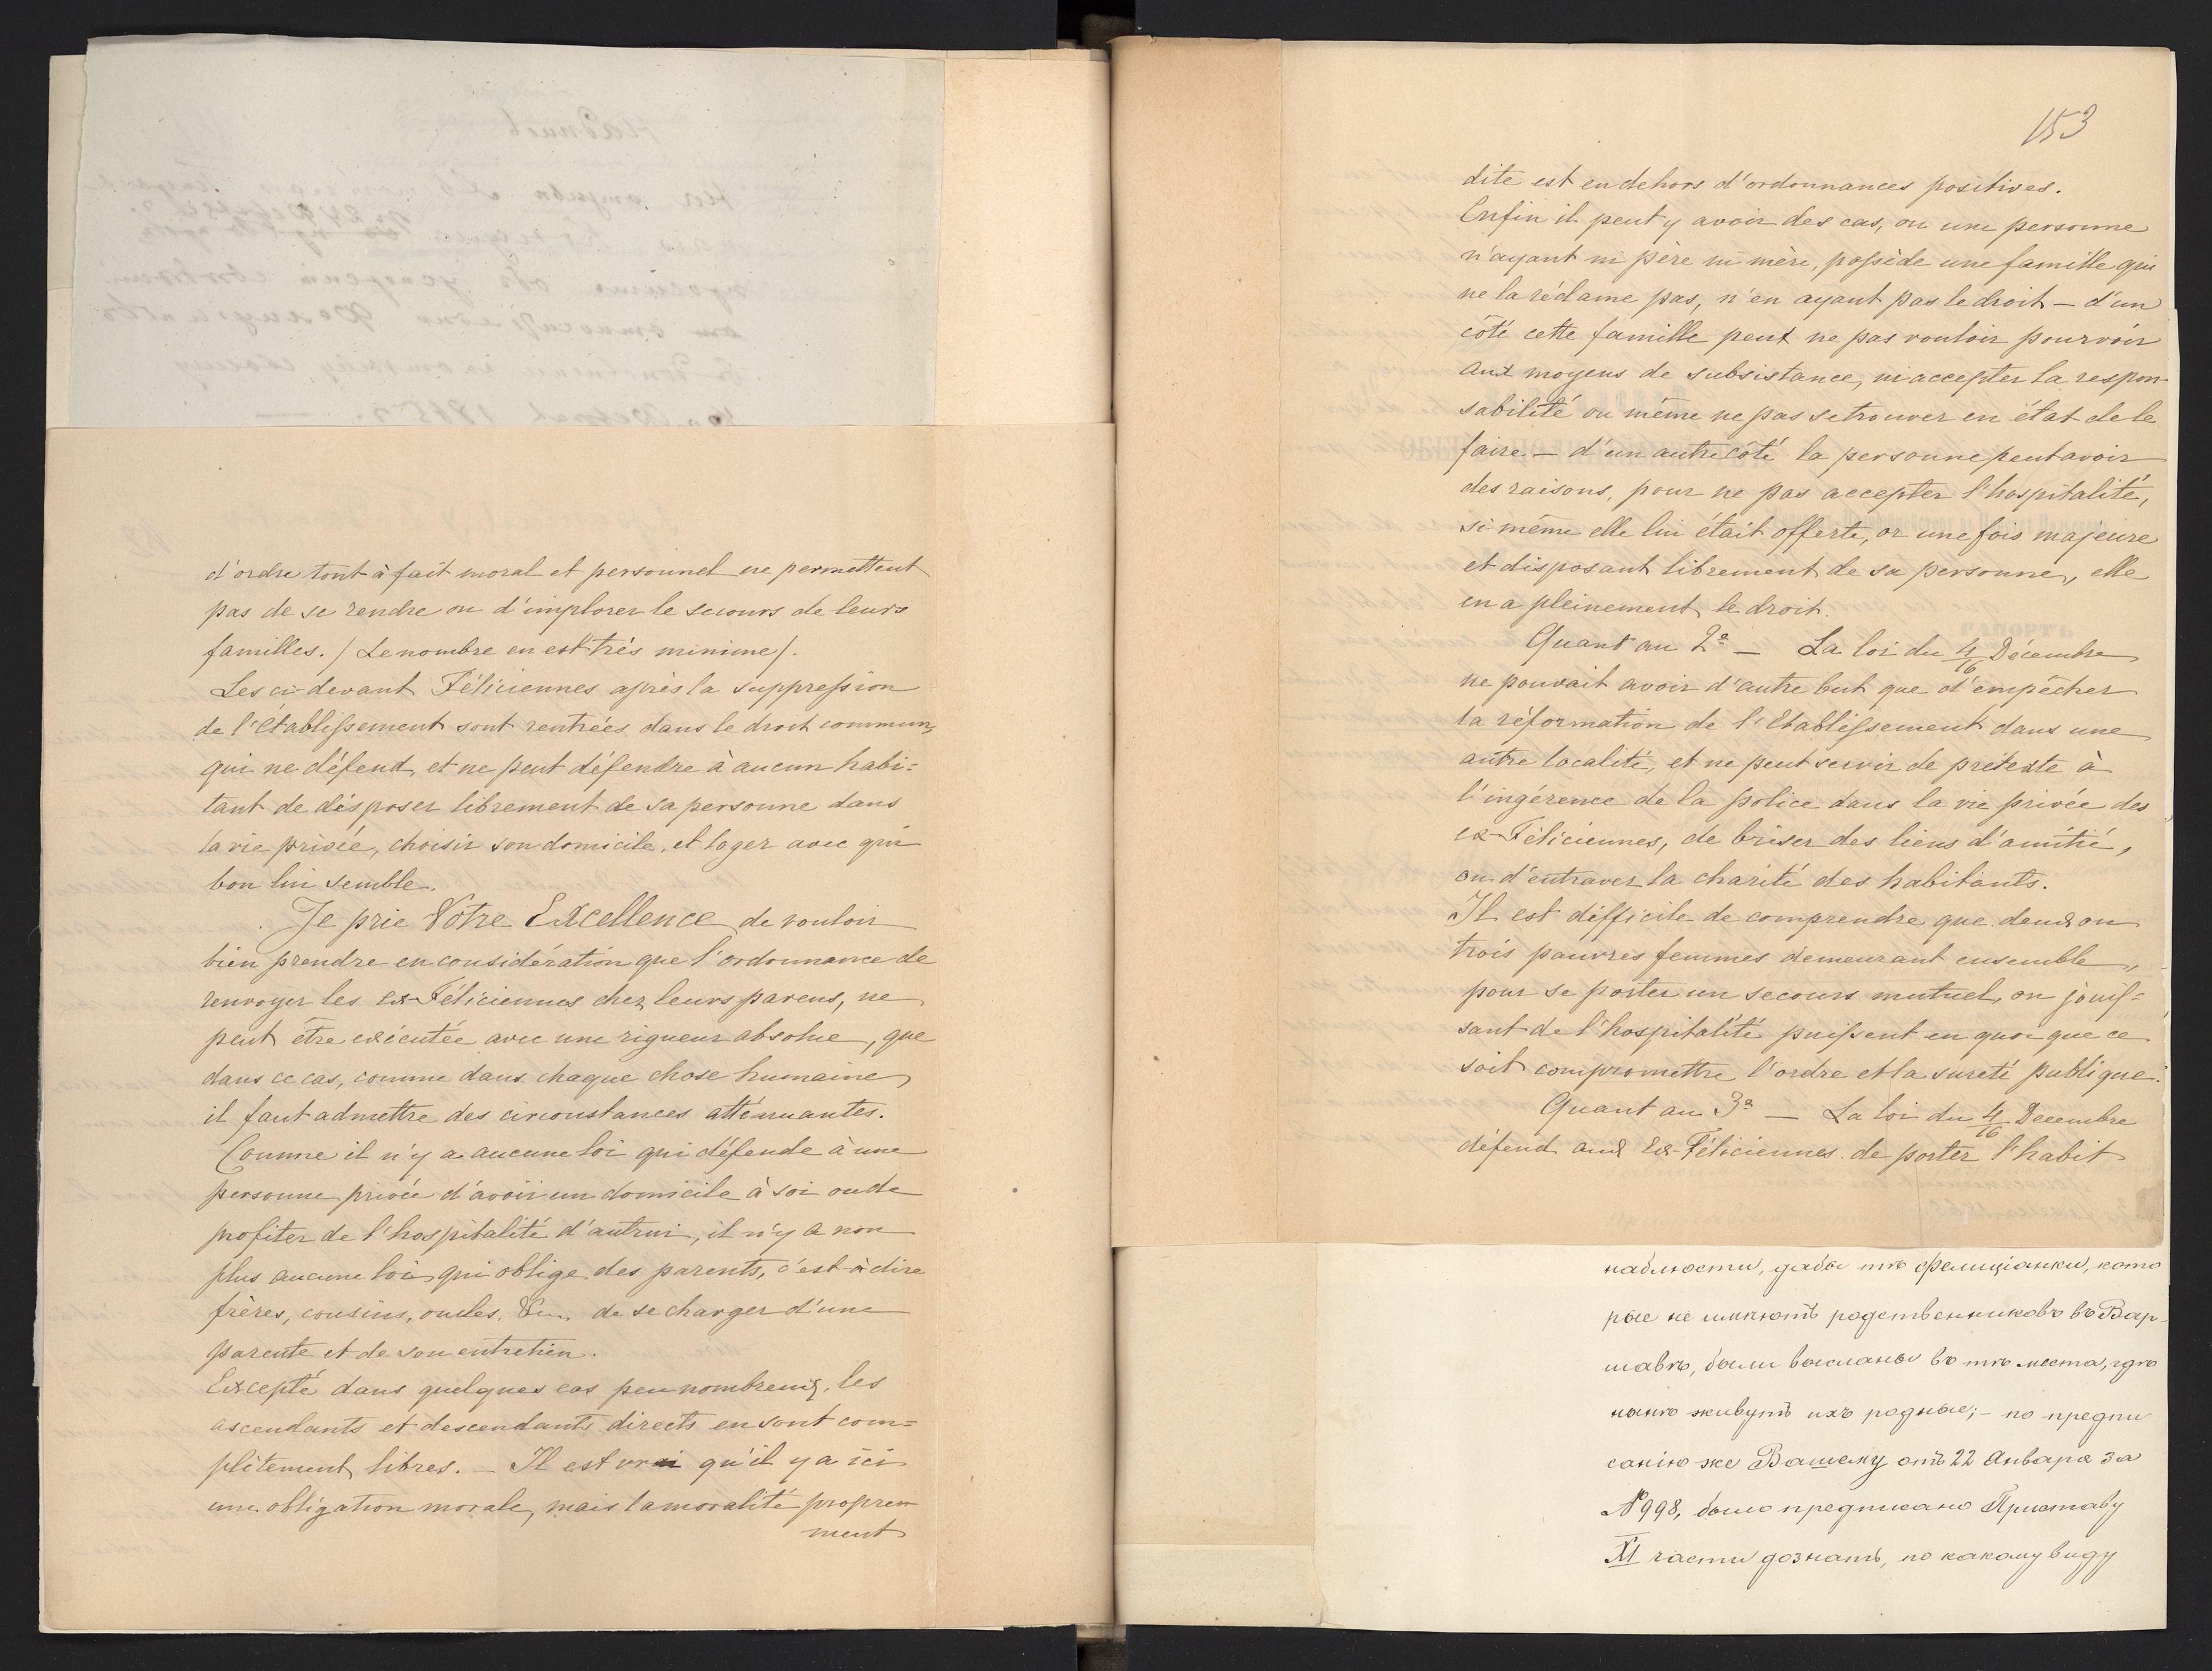 d'ordre tout à fait moral et personnel ne permettent
pas de se rendre ou d'implorer le secours de leurs
familles. / Le nombre en est très minime /.
Les ci-devant Féliciennes après la suppression
de l'établissement sont rentrées dans le droit commun,
qui ne défend, et ne peut défendre à aucun habi=
tant de disposer librement de sa personne dans
la vie privée, choisir son domicile, et loger avec qui
bon lui semble.
Je prie Votre Excellence de vouloir
bien prendre en considération que l'ordonnance de
renvoyer les ex-Féliciennes chez leurs parens, ne
peut être exécutée avec une rigueur absolue, que
dans ce cas, comme dans chaque chose humaine,
il faut admettre des circonstances atténuantes.
Comme il n'y a aucune loi qui défende à une
personne privée d'avoir un domicile à soi ou de
profiter de l'hospitalité d'autrui, il n'y a non
plus aucune loi qui oblige des parents, c'est-à dire
frères, cousins, oncles, de se charger d'une
parente et de son entretien.
Excepté dans quelques cas peu nombreux, les
ascendants et descendants directs en sont com=
plètement libres. — Il est vrai qu'il y a ici
une obligation morale, mais la moralité propre
ment
153
dite est en dehors d'ordonnances positives.
Enfin il peut y avoir des cas, ou une personne
n'ayant ni père ni mère, possède une famille qui
ne la réclame pas, n'en ayant pas le droit — d'un
côté cette famille peut ne pas vouloir pourvoir
aux moyens de subsistance, ni accepter la respon-
sabilité ou même ne pas se trouver en état de le
faire — d'un autre côté la personne peut avoir
des raisons, pour ne pas accepter l'hospitalité,
si même elle lui était offerte, or une fois majeure
et disposant librement de sa personne, elle
en a pleinement le droit.
Quant au 2º — La loi du 4/16 Décembre
ne pouvait avoir d'autre but que d'empêcher
la réformation de l'Etablissement dans une
autre localité, et ne peut servir de prétexte à
l'ingérence de la police dans la vie privée des
ex-Féliciennes, de briser des liens d'amitié,
ou d'entraver la charité des habitants.
Il est difficile de comprendre que deux ou
trois pauvres femmes demeurant ensemble,
pour se porter un secours mutuel, ou jouis=
sant de l'hospitalité puissent en quoi que ce
soit compromettre l'ordre et la sureté publique.
Quant au 3º — La loi du 4/16 Decembre
défend aux Ex-Féliciennes de porter l'habit
наблюсти, дабы тѣ фелиціанки, кото
рые не имѣютъ родственниковъ въ Вар-
шавѣ, были высланы въ тѣ места, гдѣ
нынѣ живутъ ихъ родные; - по предпи
санію же Вашему отъ 22 Января за
№ 998, было предписано Приставу
XI части дознать, по какому виду